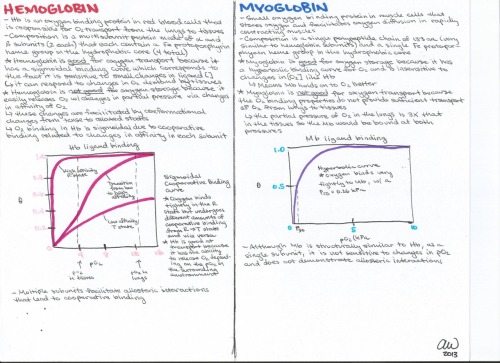 HEMOGLOBIN
- Hb is an oxygen binding protein in red blood cells that
is responsible for O2 transport from the lungs to tissues
- Composition is a multisubunit protein made of α and
β subunits (2 each) that each contain a Fe protoporphyrin
heme group in the hydrophobic core (4 total)
* Hemoglobin is good for oxygen transport because it
has a sigmoidal binding curve which corresponds to
the fact it is sensitive to small changes in ligand [ ]
& it can respond to changes in O2 demand by tissues
* Hemoglobin is not good for oxygen storage because it
easily releases O2 w/ changes in partial pressure via changes
in affinity of O2
↳ these changes are facilitated by conformational
changes from tense to relaxed states
↳ O2 binding in Hb is sigmoidal due to cooperative
binding related to changes in affinity in each subunit
Hb ligand binding
1.0
High affinity
R state
Transition
from low
to high
affinity
Low affinity
T state
θ
pO2
pO2
in tissues
pO2 in
lungs
Sigmoidal
Cooperative Binding
curve
* Oxygen binds
tightly in the R
state but undergoes
different amounts of
cooperative binding
from R → T state
and vice versa
* Hb is good at
transport because it
has the ability
to release O2 depend-
ing on the pO2 in
the surrounding
environment
- Multiple subunits facilitate allosteric interactions
that lead to cooperative binding
MYOGLOBIN
- Small oxygen binding protein in muscle cells that
stores oxygen and facilitates oxygen diffusion in rapidly
contracting muscles
- Composition is a single polypeptide chain of 153 aa (very
similar to hemoglobin subunits) and a single Fe protopor-
phyrin heme group in the hydrophobic core
* Myoglobin is good for oxygen storage because it has
a hyperbolic binding curve for O2 and is insensitive to
changes in [O2] like Hb
↳ Means Mb holds on to O2 better
* Myoglobin is not good for oxygen transport because
the O2 binding properties do not provide sufficient transport
of O2 from lungs to tissues
↳ the partial pressure of O2 in the lungs is 3X that
in the tissues so the Mb would be bound at both
pressures
Mb ligand binding
1.0
θ
0
P50
5
10
pO2 (kPa)
Hyperbolic curve
* Oxygen binds very
tightly to Mb, w/ a
P50 = 0.26 kPa
- Although Mb is structurally similar to Hb, as a
single subunit, it is not sensitive to changes in pO2
and does not demonstrate allosteric interactions
2013